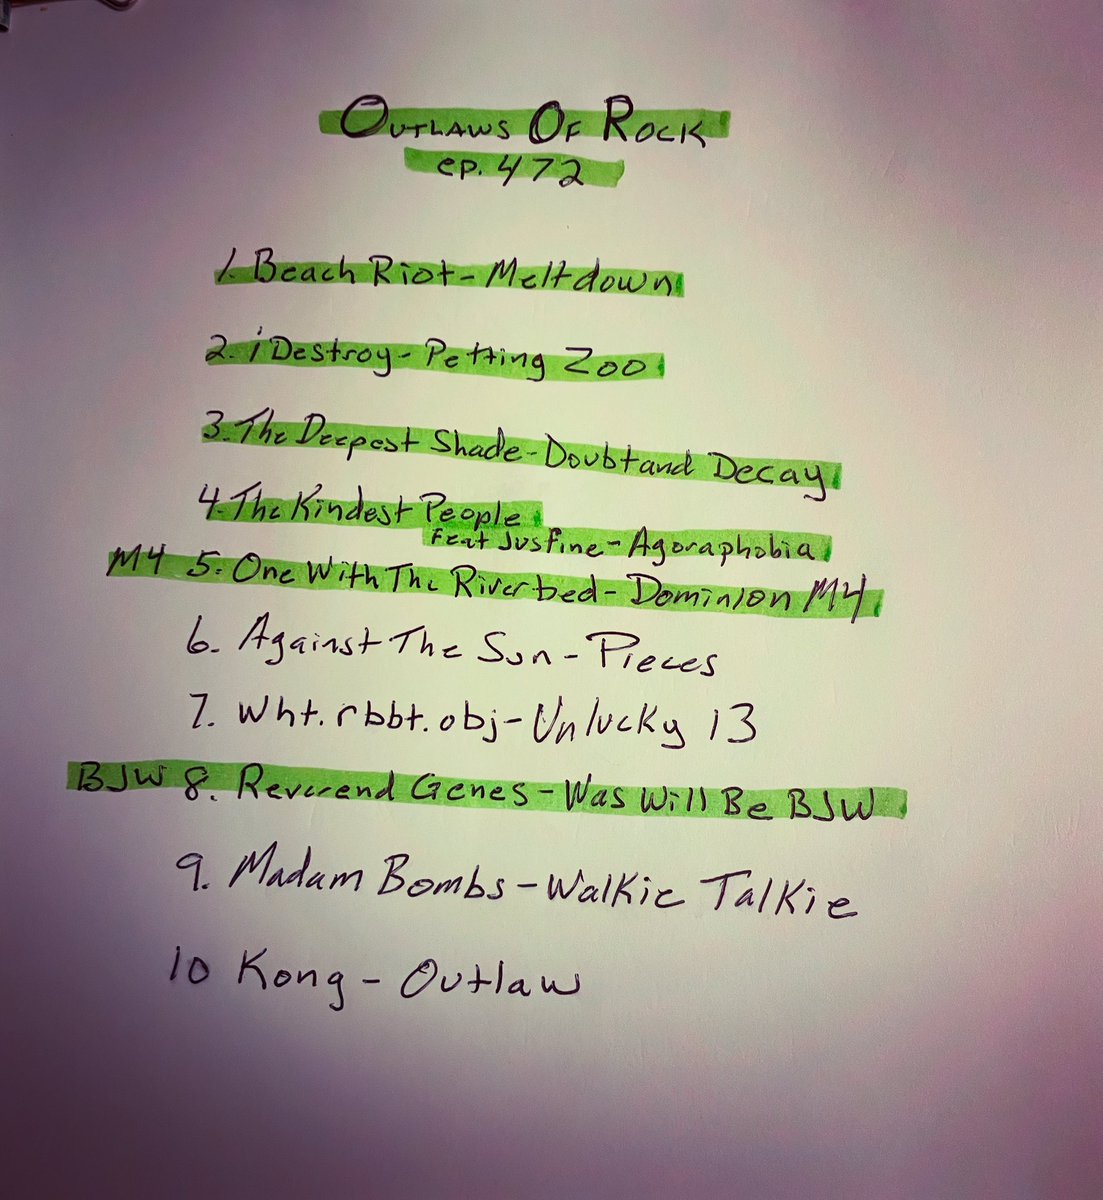 Outlaws Of Rock
ep. 472
1. Beach Riot - Meltdown
2. iDestroy - Petting Zoo
3. The Deepest Shade - Doubt and Decay
4. The Kindest People
Feat Justine - Agoraphobia
M4 5. One With The Riverbed - Dominion M4
6. Against The Sun - Pieces
7. Wht.rbbt.obj - Unlucky 13
BJW 8. Reverend Genes - Was Will Be BJW
9. Madam Bombs - Walkie Talkie
10 Kong - Outlaw